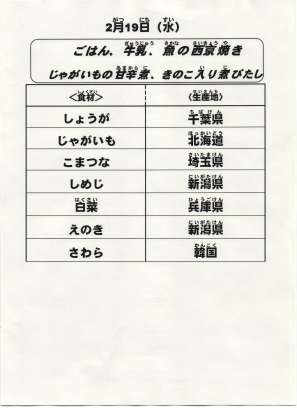 2月19日（水）
ごはん、牛乳、魚の西京焼き
じゃがいもの甘辛煮、きのこ入り煮びたし
＜食材＞ 〈生産地〉
しょうが 千葉県
じゃがいも 北海道
こまつな 埼玉県
しめじ 新潟県
白菜 兵庫県
えのき 新潟県
さわら 韓国